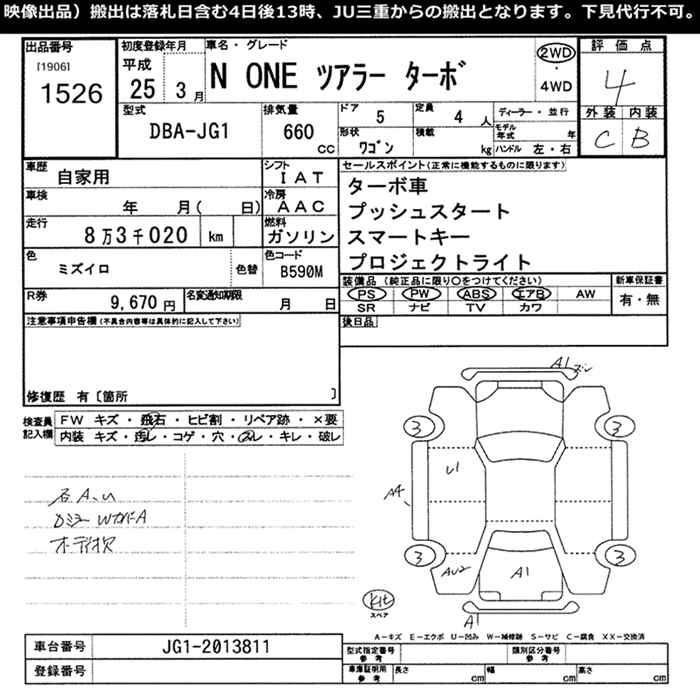 映像出品）搬出は落札日含む4日後13時、JU三重からの搬出となります。下見代行不可。
出品番号
[1906]
1526
初度登録年月
平成
25 3 月
車名・グレード
N ONE ツアラー ターボ
2WD
・
4WD
評価点
4
外装 内装
C B
型式
DBA-JG1
排気量
660 cc
ドア
5
定員
4 人
ディーラー・並行
形状
ワゴン
積載
kg
モデル年式 年
ハンドル 左・右
車歴
自家用
シフト
IAT
車検
年 月( 日)
冷房
AAC
走行
8万3千020 km
燃料
ガソリン
色
ミズイロ
色替
色コード
B590M
R券
9,670 円
名変通知期限
月 日
セールスポイント(正常に機能するものに限ります)
ターボ車
プッシュスタート
スマートキー
プロジェクトライト
装備品(純正品に限り○をつけてください)
PS PW ABS エアB AW
SR ナビ TV カワ
新車保証書
有・無
後日品
注意事項申告欄(不具合内容等は具体的に記入して下さい)
修復歴 有〔箇所 〕
検査員記入欄
FW キズ・飛石・ヒビ割・リペア跡・×要
内装 キズ・汚レ・コゲ・穴・スレ・キレ・破レ
A1
3 3
U1
A4
3 3
AU2 A1
A1
Kit
スペア
A.U
A
A－キズ E－エクボ U－凹み W－補修跡 S－サビ C－腐食 XX－交換済
車台番号 JG1-2013811
登録番号
型式指定番号
参考
類別区分番号
参考
車庫証明用
参考
長さ cm 幅 cm 高さ cm